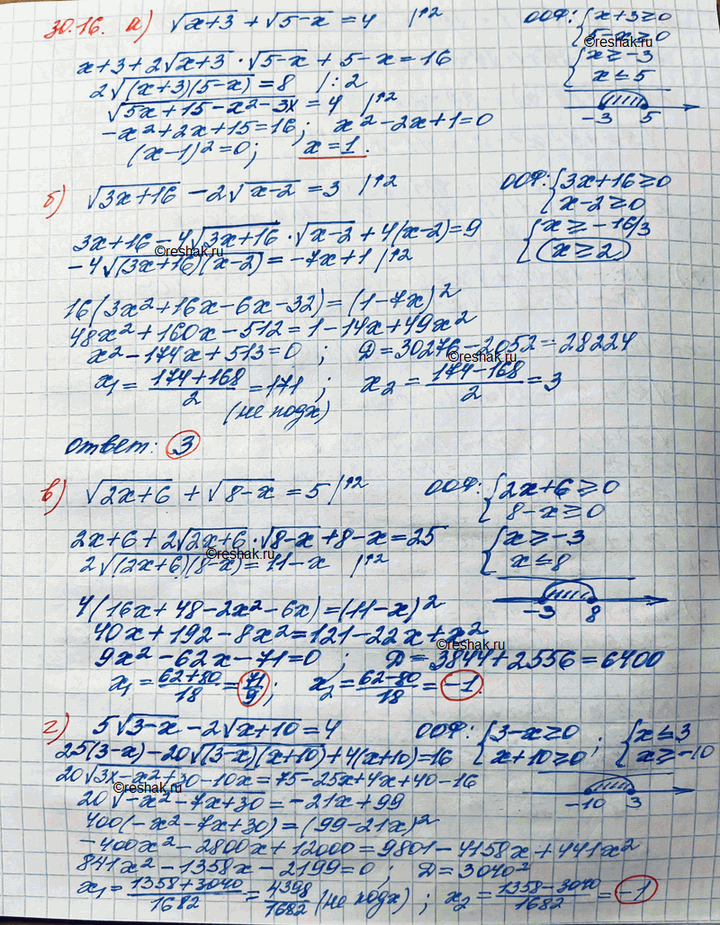 30.16. а) √(x+3) + √(5-x) = 4 |↑2 ООФ: {x+3≥0
{5-x≥0
x+3+2√(x+3)·√(5-x) + 5-x=16 {x≥-3
2√((x+3)(5-x)) = 8 |:2 {x≤5
√(5x+15-x²-3x) = 4 |↑2
-3 5
-x²+2x+15=16; x²-2x+1=0
(x-1)²=0; x=1.
б) √(3x+16) - 2√(x-2) = 3 |↑2 ООФ: {3x+16≥0
{x-2≥0
3x+16-4√(3x+16)·√(x-2)+4(x-2)=9 {x≥-16/3
©reshak.ru
-4√((3x+16)(x-2)) = -7x+1 |↑2 {x≥2
16(3x²+16x-6x-32)=(1-7x)²
48x²+160x-512=1-14x+49x²
x²-174x+513=0 ; D=30276-2052=28224
©reshak.ru
x₁= (174+168)/2 =171 ; x₂ = (174-168)/2 = 3
(не подх)
ответ: 3
в) √(2x+6) + √(8-x) = 5 |↑2 ООФ: {2x+6≥0
{8-x≥0
2x+6+2√(2x+6)·√(8-x)+8-x=25 {x≥-3
©reshak.ru
2√((2x+6)(8-x)) = 11-x |↑2 {x≤8
4(16x+48-2x²-6x)=(11-x)²
-3 8
40x+192-8x²=121-22x+x²
©reshak.ru
9x²-62x-71=0 ; D=3844+2556=6400
x₁= (62+80)/18 = 71/9; x₂= (62-80)/18 = -1.
г) 5√(3-x) - 2√(x+10) = 4 ООФ: {3-x≥0 ; {x≤3
{x+10≥0 {x≥-10
25(3-x)-20√((3-x)(x+10))+4(x+10)=16
20√(3x-x²+30-10x)=75-25x+4x+40-16
©reshak.ru
20√(-x²-7x+30) = -21x+99
-10 3
400(-x²-7x+30)=(99-21x)²
-400x²-2800x+12000=9801-4158x+441x²
841x²-1358x-2199=0; D=3040²
x₁= (1358+3040)/1682 = 4398/1682 (не подх) ; x₂= (1358-3040)/1682 = -1